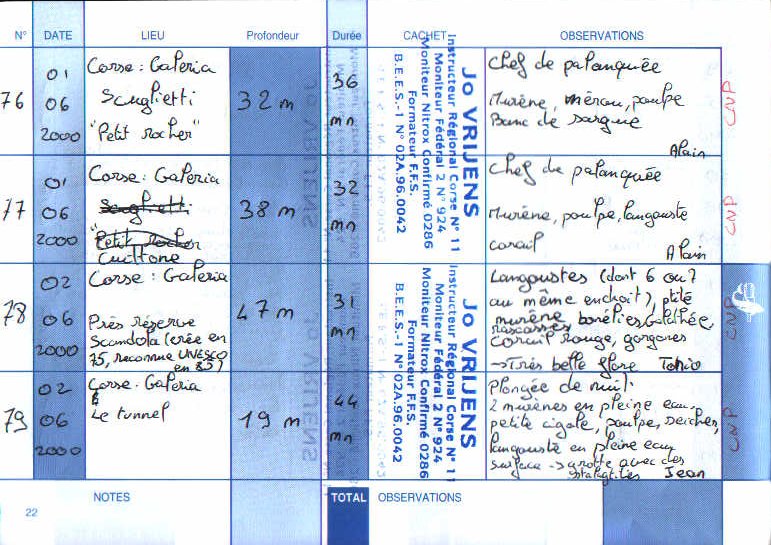 N° DATE LIEU Profondeur Durée CACHET OBSERVATIONS
76
01
06
2000
Corse : Galeria
Scuglietti
"Petit rocher"
32 m
36
mn
Chef de palanquée
Murène, mérou, poulpe
Banc de sargue
Alain
CNP
77
01
06
2000
Corse : Galeria
Scuglietti
"Petit rocher
Cuittone
38 m
32
mn
Chef de palanquée
Murène, poulpe, langouste
corail
Alain
CNP
Jo VRIJENS
Instructeur Régional Corse N° 11
Moniteur Fédéral 2 N° 924
Moniteur Nitrox Confirmé 0286
Formateur F.F.S.
B.E.E.S.-1 N° 02A.96.0042
78
02
06
2000
Corse : Galeria
Près réserve
Scandola (créée en
75, reconnue UNESCO
en 83)
47 m
31
mn
Langoustes (dont 6 ou 7
au même endroit), ptite
murène bonélies, Galathée,
rascasses
corail Rouge, gorgones
→ Très belle flore
CNP
79
02
06
2000
Corse : Galeria
Le tunnel
19 m
44
mn
Plongée de nuit :
2 murènes en pleine eau,
petite cigale, poulpes, seiches,
langouste en pleine eau
surface → grotte avec des
stalagtites Jean
CNP
Jo VRIJENS
Instructeur Régional Corse N° 11
Moniteur Fédéral 2 N° 924
Moniteur Nitrox Confirmé 0286
Formateur F.F.S.
B.E.E.S.-1 N° 02A.96.0042
NOTES TOTAL OBSERVATIONS
22